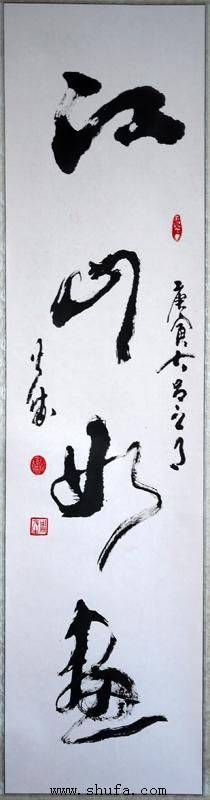 江山如画
庚寅大吕之月
www.shufa.com